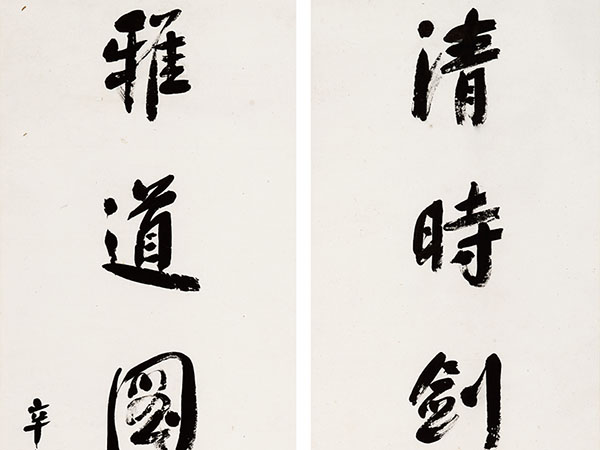 清時劍
雅道圖
辛